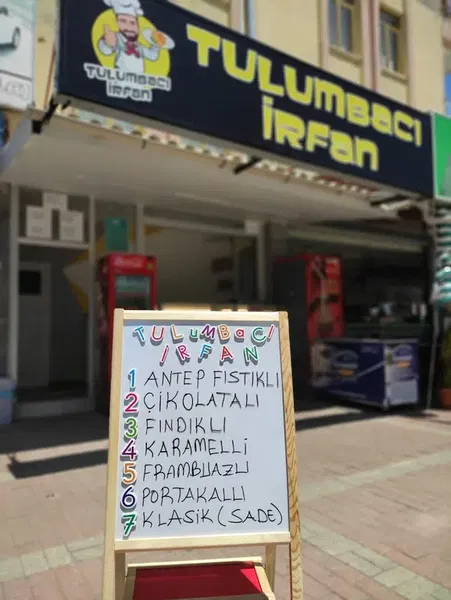 TULUMBACI
İRFAN
TULUMBACI
İRFAN
TULUMBACI
İRFAN
1 ANTEP FISTIKLI
2 ÇİKOLATALI
3 FINDIKLI
4 KARAMELLİ
5 FRAMBUAZLI
6 PORTAKALLI
7 KLASİK (SADE)